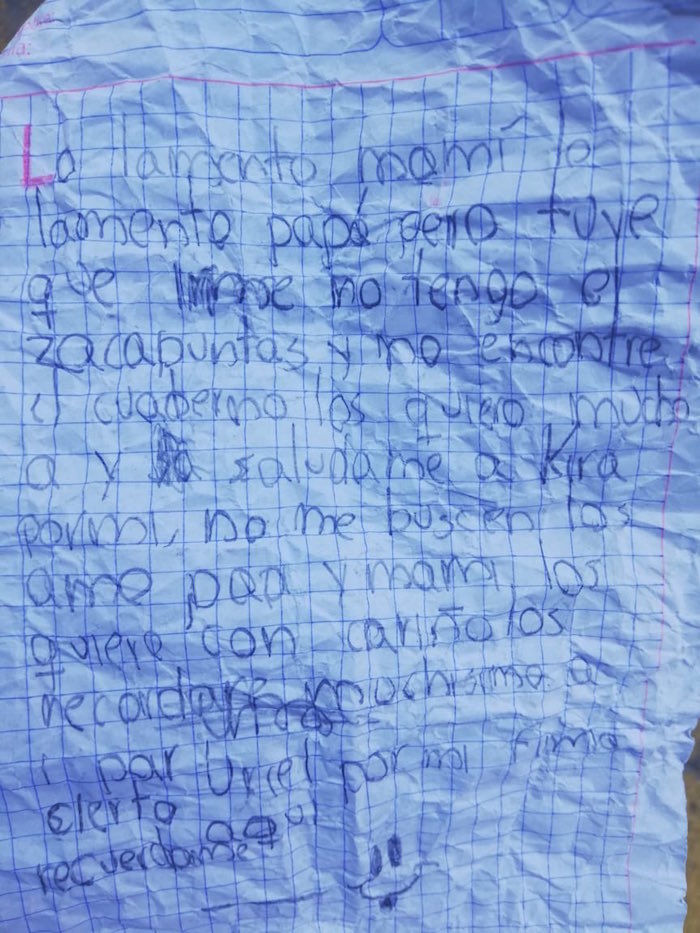 Lo lamento mamí lo
lamento papá pero tuve
que irme no tengo el
zacapuntas, y no encontre
el cuaderno los quiero mucho
a y saludame a Kira
pormi, no me buscen los
ame papa y mami, los
quiere con cariño los
recordare muchisimo a
i par Uriel por mi firma
cierto aqui
recuerdame